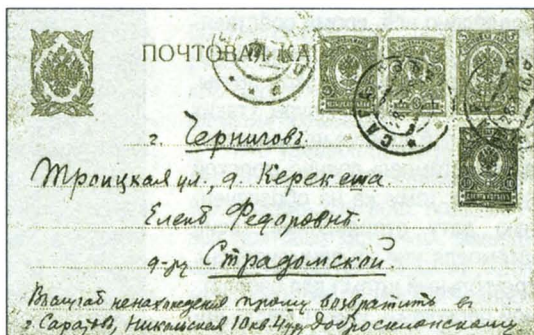 ПОЧТОВАЯ КА
г. Черниговъ
Троицкая ул., д. Керекеша
Еленѣ Федоровнѣ
д-ру Страдомской.
ненахожденія прошу возвратить въ
г. Саратовъ, Никольская 10 кв. 4 Доброклонскому